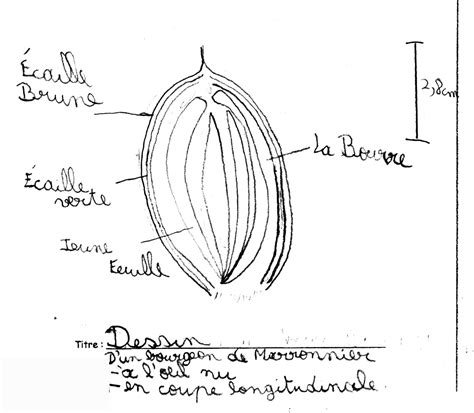 Écaille
Brune
2,8cm
La Bourre
Écaille
verte
Jeune
Feuille
Titre : Dessin
D'un bourgeon de Marronnier
- à l'oeil nu
- en coupe longitudinale